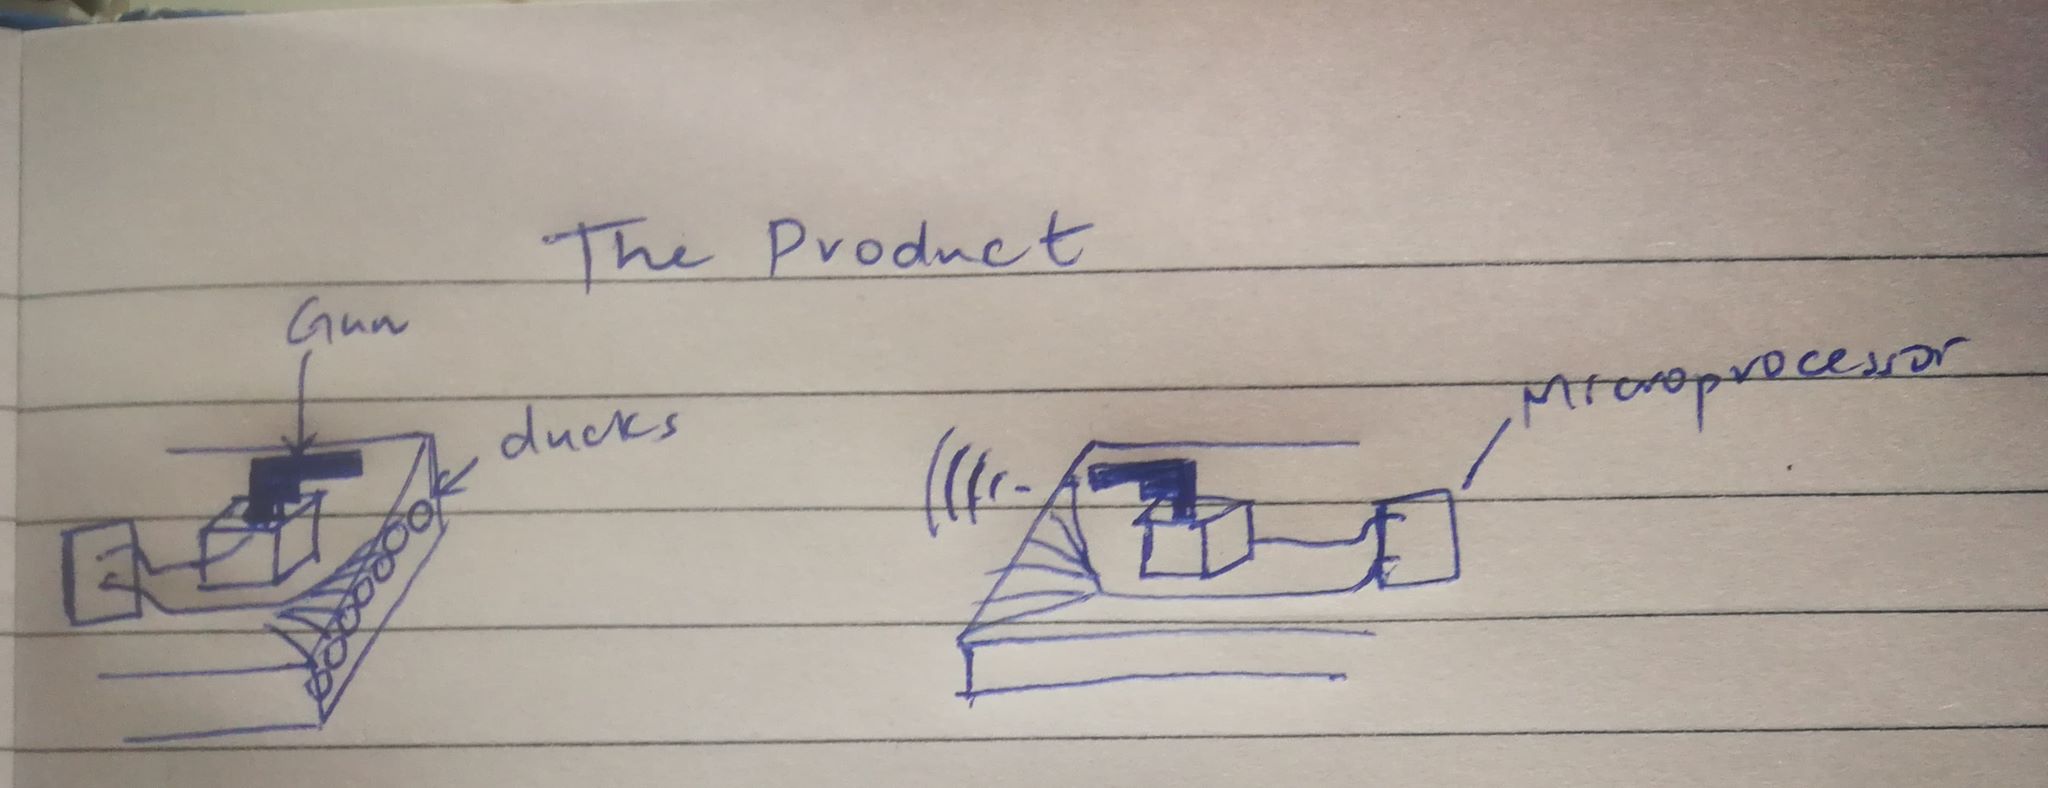 The Product
Gun
ducks
Microprocessor